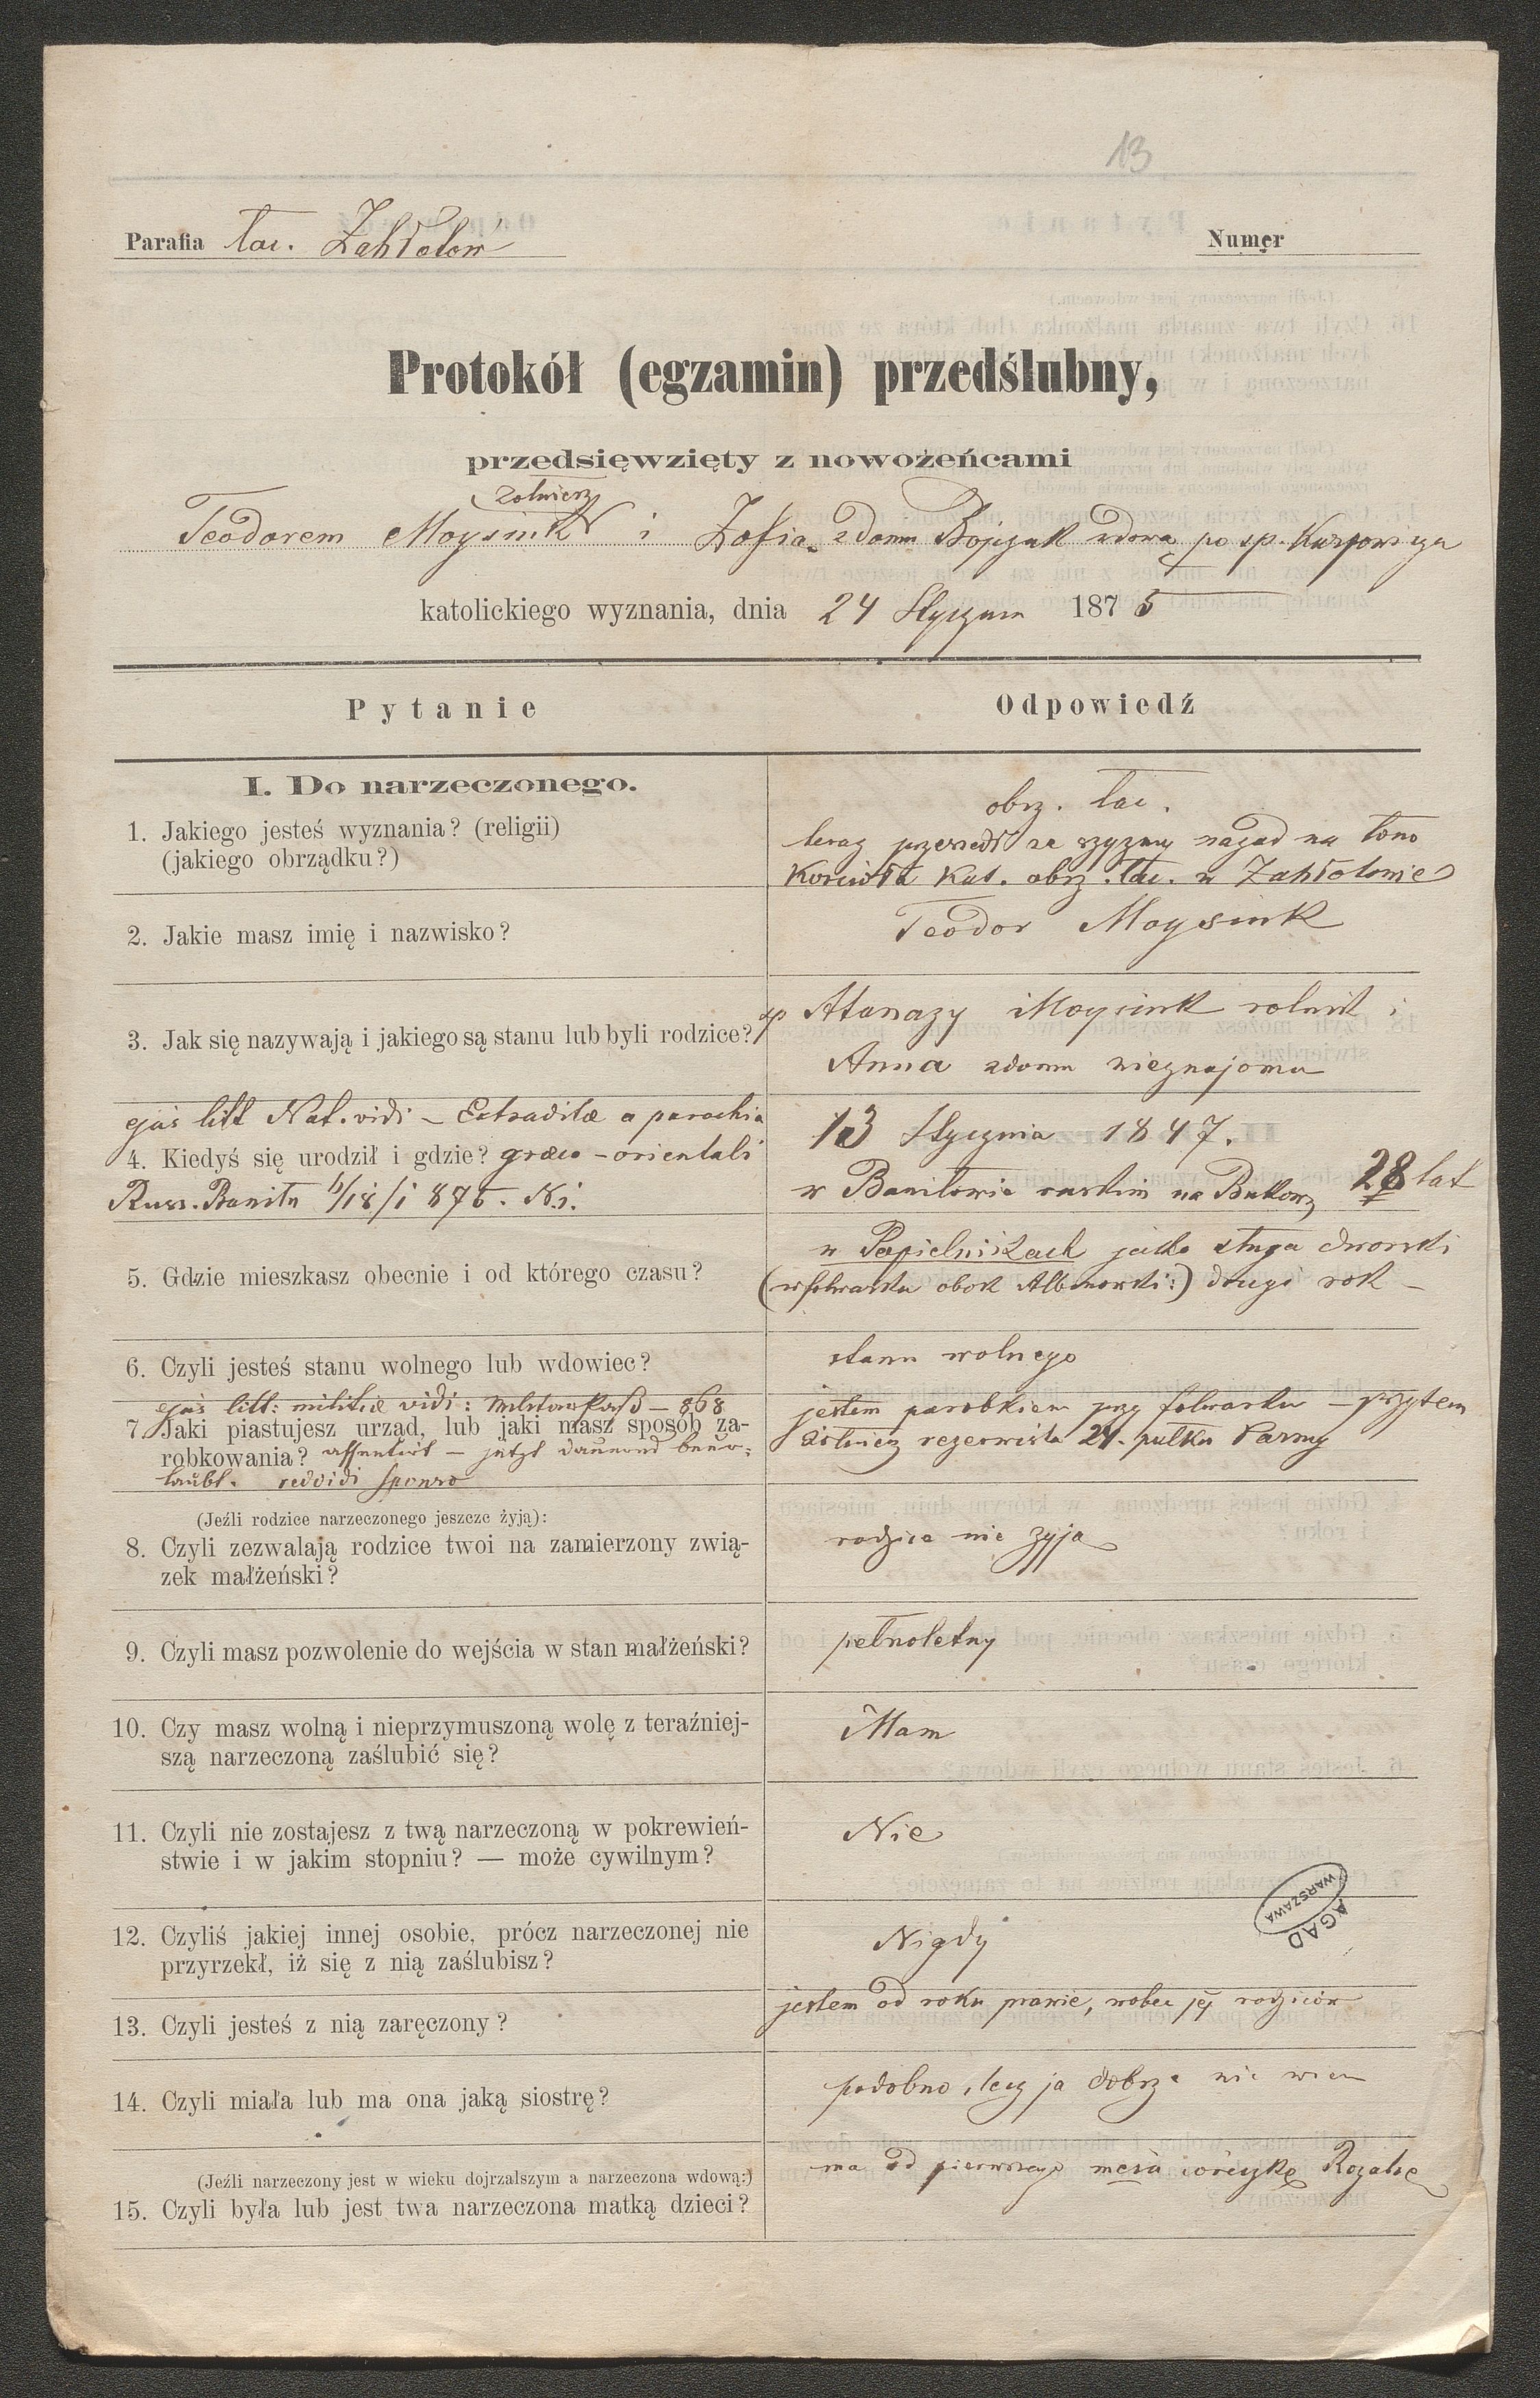 13
Parafia łać. Zabłotow
Numer
Protokół (egzamin) przedślubny,
przedsięwzięty z nowożeńcami
żołnierz
Teodorem Moysiuk i Zofia z domu Bojczuk wdowa po sp.
katolickiego wyznania, dnia 24 Stycznia 1875
Pytanie
Odpowiedź
I. Do narzeczonego.
1. Jakiego jesteś wyznania? (religii)
(jakiego obrządku?)
obrz. łać.
teraz przeszedł ze szyzmy nazad na łono
Kościoła Kat. obrz. łać. w Zabłotowie
2. Jakie masz imię i nazwisko?
Teodor Moysiuk
3. Jak się nazywają i jakiego są stanu lub byli rodzice?
sp Atanazy Moysiuk rolnik i
Anna z domu nieznajoma
ejus litt Nat. vidi – Extraditæ a parochia
4. Kiedyś się urodził i gdzie? græco-orientali
Russ. Banilla 18/1 875. N.j.
13 Stycznia 1847.
w Baniłowie ruskim na Bukow 28 lat
5. Gdzie mieszkasz obecnie i od którego czasu?
w Popielnikach jako sługa dworski
(w folwarku obok Albinowski:) drugi rok –
6. Czyli jesteś stanu wolnego lub wdowiec?
stanu wolnego
ejus litt: militiæ vidi: Militärpaß – 868
7. Jaki piastujesz urząd, lub jaki masz sposób za-
robkowania? assentirt – jetzt dauernd beur-
laubt. redvidi sponso
jestem parobkiem przy folwarku – przytem
żołnierz rezerwista 24. pułku Parmy
(Jeźli rodzice narzeczonego jeszcze żyją):
8. Czyli zezwalają rodzice twoi na zamierzony zwią-
zek małżeński?
rodzice nie żyją
9. Czyli masz pozwolenie do wejścia w stan małżeński?
pełnoletny
10. Czy masz wolną i nieprzymuszoną wolę z teraźniej-
szą narzeczoną zaślubić się?
Mam
11. Czyli nie zostajesz z twą narzeczoną w pokrewień-
stwie i w jakim stopniu? — może cywilnym?
Nie
AGAD
WARSZAWA
12. Czyliś jakiej innej osobie, prócz narzeczonej nie
przyrzekł, iż się z nią zaślubisz?
Nigdy
13. Czyli jesteś z nią zaręczony?
jestem od roku prawie, wobec jej rodziców
14. Czyli miała lub ma ona jaką siostrę?
podobno, lecz ja dobrze nie wiem
(Jeźli narzeczony jest w wieku dojrzalszym a narzeczona wdową:)
15. Czyli była lub jest twa narzeczona matką dzieci?
ma od pierwszego męża córeczkę Rozalię